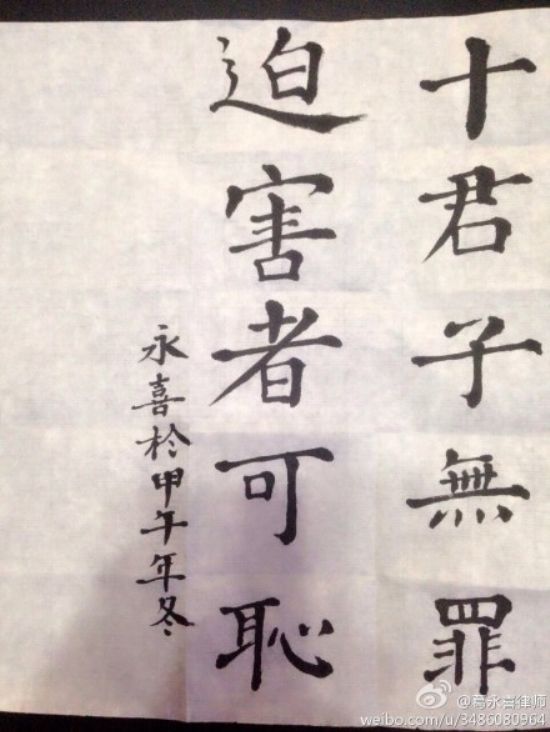 十君子無罪
迫害者可恥
永喜於甲午年冬
@葛永喜律师
weibo.com/u/3486080964